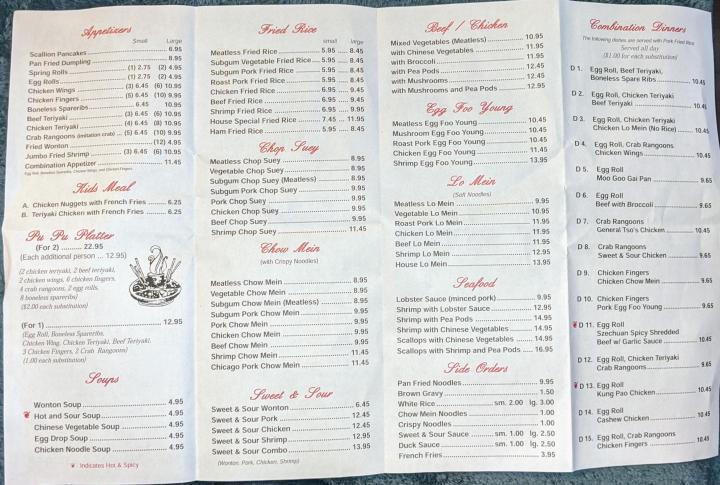 Appetizers
Small Large
Scallion Pancakes 6.95
Pan Fried Dumpling 8.95
Spring Rolls (1) 2.75 (2) 4.95
Egg Rolls (1) 2.75 (2) 4.95
Chicken Wings (3) 6.45 (6) 10.95
Chicken Fingers (5) 6.45 (10) 9.95
Boneless Spareribs 6.45 10.95
Beef Teriyaki (3) 6.45 (6) 10.95
Chicken Teriyaki (4) 6.45 (8) 10.95
Crab Rangoons (imitation crab) (5) 6.45 (10) 9.95
Fried Wonton (12) 4.95
Jumbo Fried Shrimp (3) 6.45 (6) 10.95
Combination Appetizer 11.45
Egg Roll, Boneless Spareribs, Chicken Wings, and Chicken Fingers
Kids Meal
A. Chicken Nuggets with French Fries 6.25
B. Teriyaki Chicken with French Fries 6.25
Pu Pu Platter
(For 2) 22.95
(Each additional person ... 12.95)
(2 chicken teriyaki, 2 beef teriyaki,
2 chicken wings, 6 chicken fingers,
4 crab rangoons, 2 egg rolls,
8 boneless spareribs)
($2.00 each substitution)
(For 1) 12.95
(Egg Roll, Boneless Spareribs,
Chicken Wing, Chicken Teriyaki, Beef Teriyaki,
3 Chicken Fingers, 2 Crab Rangoons)
(1.00 each substitution)
Soups
Wonton Soup 4.95
Hot and Sour Soup 4.95
Chinese Vegetable Soup 4.95
Egg Drop Soup 4.95
Chicken Noodle Soup 4.95
Indicates Hot & Spicy
Fried Rice
small large
Meatless Fried Rice 5.95 8.45
Subgum Vegetable Fried Rice 5.95 8.45
Subgum Pork Fried Rice 5.95 8.45
Roast Pork Fried Rice 5.95 8.45
Chicken Fried Rice 6.95 9.45
Beef Fried Rice 6.95 9.45
Shrimp Fried Rice 6.95 9.95
House Special Fried Rice 7.45 11.95
Ham Fried Rice 5.95 8.45
Chop Suey
Meatless Chop Suey 8.95
Vegetable Chop Suey 8.95
Subgum Chop Suey (Meatless) 8.95
Subgum Pork Chop Suey 8.95
Pork Chop Suey 9.95
Chicken Chop Suey 9.95
Beef Chop Suey 9.95
Shrimp Chop Suey 11.45
Chow Mein
(with Crispy Noodles)
Meatless Chow Mein 8.95
Vegetable Chow Mein 8.95
Subgum Chow Mein (Meatless) 8.95
Subgum Pork Chow Mein 9.95
Pork Chow Mein 9.95
Chicken Chow Mein 9.95
Beef Chow Mein 9.95
Shrimp Chow Mein 11.45
Chicago Pork Chow Mein 11.45
Sweet & Sour
Sweet & Sour Wonton 6.45
Sweet & Sour Pork 12.45
Sweet & Sour Chicken 12.45
Sweet & Sour Shrimp 12.95
Sweet & Sour Combo 13.95
(Wonton, Pork, Chicken, Shrimp)
Beef / Chicken
Mixed Vegetables (Meatless) 10.95
with Chinese Vegetables 11.95
with Broccoli 11.95
with Pea Pods 12.45
with Mushrooms 12.45
with Mushrooms and Pea Pods 12.95
Egg Foo Young
Meatless Egg Foo Young 10.45
Mushroom Egg Foo Young 10.95
Roast Pork Egg Foo Young 10.95
Chicken Egg Foo Young 11.45
Shrimp Egg Foo Young 13.95
Lo Mein
(Soft Noodles)
Meatless Lo Mein 9.95
Vegetable Lo Mein 10.95
Roast Pork Lo Mein 11.95
Chicken Lo Mein 11.95
Beef Lo Mein 11.95
Shrimp Lo Mein 12.95
House Lo Mein 13.95
Seafood
Lobster Sauce (minced pork) 9.95
Shrimp with Lobster Sauce 12.95
Shrimp with Pea Pods 14.95
Shrimp with Chinese Vegetables 14.95
Scallops with Chinese Vegetables 14.95
Scallops with Shrimp and Pea Pods 16.95
Side Orders
Pan Fried Noodles 9.95
Brown Gravy 1.50
White Rice sm. 2.00 lg. 3.00
Chow Mein Noodles 1.00
Crispy Noodles 1.00
Sweet & Sour Sauce sm. 1.00 lg. 2.50
Duck Sauce sm. 1.00 lg. 2.50
French Fries 3.95
Combination Dinners
The following dishes are served with Pork Fried Rice
Served all day
($1.00 for each substitution)
D 1. Egg Roll, Beef Teriyaki,
Boneless Spare Ribs 10.45
D 2. Egg Roll, Chicken Teriyaki
Beef Teriyaki 10.45
D 3. Egg Roll, Chicken Teriyaki
Chicken Lo Mein (No Rice) 10.45
D 4. Egg Roll, Crab Rangoons
Chicken Wings 10.45
D 5. Egg Roll
Moo Goo Gai Pan 9.65
D 6. Egg Roll
Beef with Broccoli 9.65
D 7. Crab Rangoons
General Tso's Chicken 10.45
D 8. Crab Rangoons
Sweet & Sour Chicken 9.65
D 9. Chicken Fingers
Chicken Chow Mein 9.65
D 10. Chicken Fingers
Pork Egg Foo Young 9.65
D 11. Egg Roll
Szechuan Spicy Shredded
Beef w/ Garlic Sauce 10.45
D 12. Egg Roll, Chicken Teriyaki
Crab Rangoons 9.65
D 13. Egg Roll
Kung Pao Chicken 10.45
D 14. Egg Roll
Cashew Chicken 10.45
D 15. Egg Roll, Crab Rangoons
Chicken Fingers 10.45